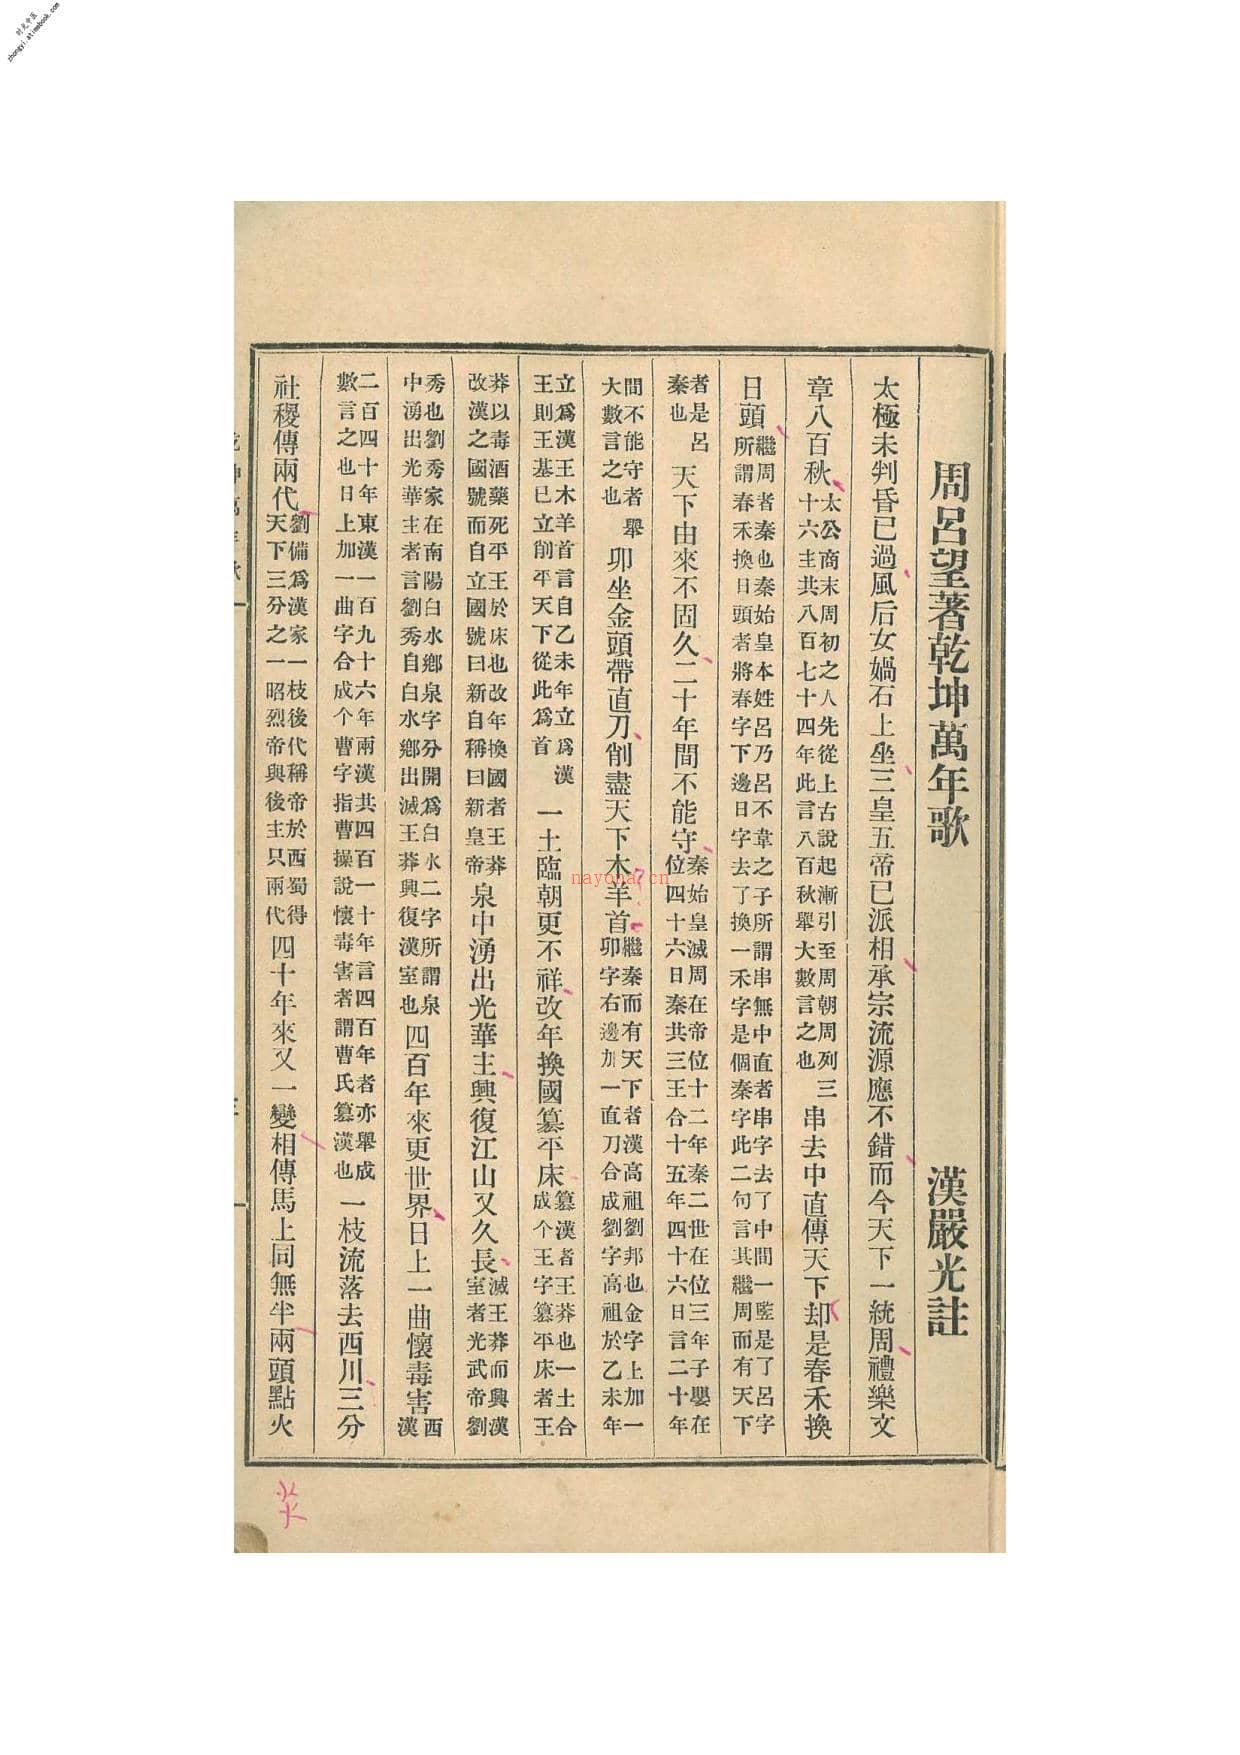 时光中医
zhongyi.atimebook.com
周呂望著乾坤萬年歌　漢嚴光註
太極未判昏已過風后女媧石上坐三皇五帝已派相承宗流源應不錯而今天下一統周禮樂文
章八百秋太公商末周初之人先從上古說起漸引至周朝周列三十六主共八百七十四年此言八百秋舉大數言之也串去中直傳天下却是春禾換
日頭繼周者秦也秦始皇本姓呂乃呂不韋之子所謂串無中直者串字去了中間一豎是了呂字所謂春禾換日頭者將春字下邊日字去了換一禾字是個秦字此二句言其繼周而有天下
者是呂秦也天下由來不固久二十年間不能守秦始皇滅周在帝位十二年秦二世在位三年子嬰在位四十六日秦共三王合十五年四十六日言二十年
間不能守者舉大數言之也卯坐金頭帶直刀削盡天下木羊首繼秦而有天下者漢高祖劉邦也金字上加一卯字右邊加一直刀合成劉字高祖於乙未年
立爲漢王木羊首言自乙未年立爲漢王則王基已立削平天下從此爲首一土臨朝更不祥改年換國篡平床篡漢者王莽也一土合成个王字篡平床者王
莽以毒酒藥死平王於床也改年換國者王莽改漢之國號而自立國號曰新自稱曰新皇帝泉中湧出光華主興復江山又久長滅王莽而興漢室者光武帝劉
秀也劉秀家在南陽白水鄉泉字分開爲白水二字所謂泉中湧出光華主者言劉秀自白水鄉出滅王莽興復漢室也四百年來更世界日上一曲懷毒害西漢
二百四十年東漢一百九十六年兩漢共四百一十年言四百年者亦舉成數言之也日上加一曲字合成个曹字指曹操說懷毒害者謂曹氏篡漢也一枝流落去西川三分
社稷傳兩代劉備爲漢家一枝後代稱帝於西蜀得天下三分之一昭烈帝與後主只兩代四十年來又一變相傳馬上同無半兩頭點火
nayona.cn
炎